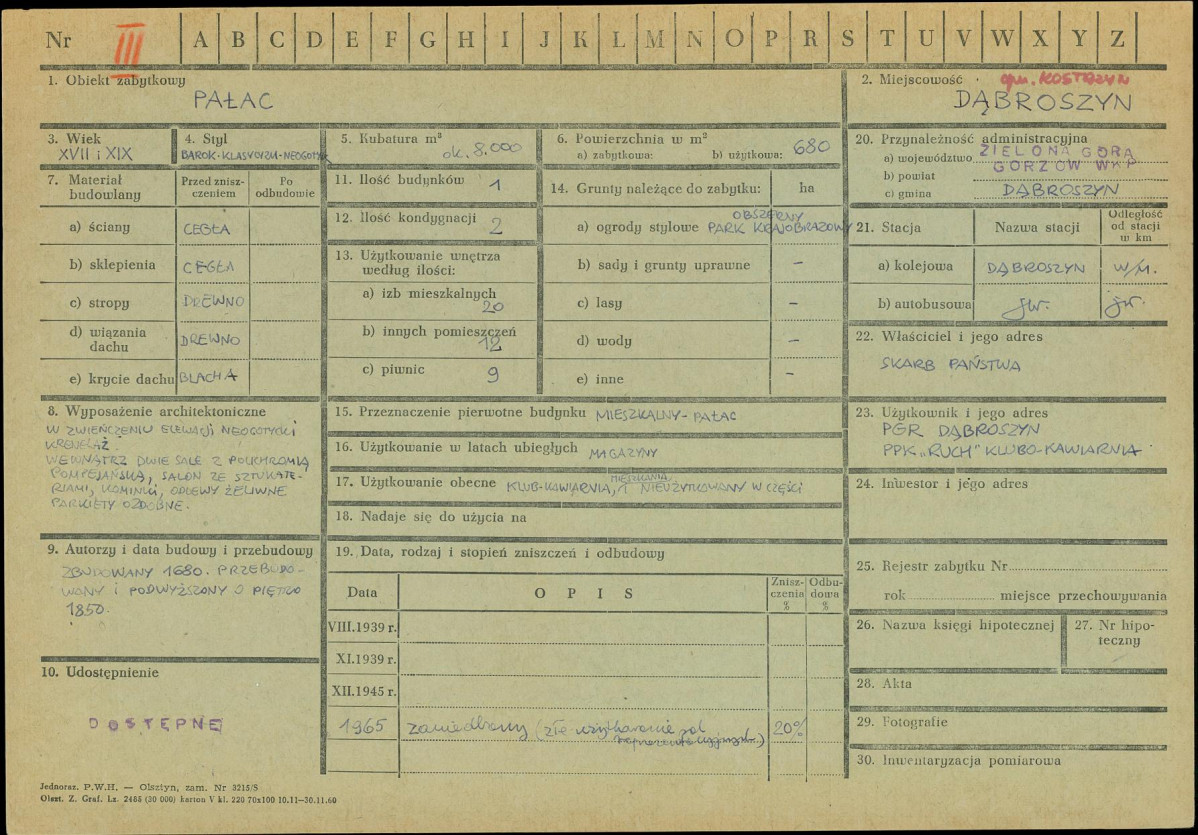 Nr III A B C D E F G H I J K L M N O P R S T U V W X Y Z
1. Obiekt zabytkowy
PAŁAC
2. Miejscowość gm. KOSTRZYN
DĄBROSZYN
3. Wiek
XVII i XIX
4. Styl
BAROK-KLASYCYZM-NEOGOTYK
5. Kubatura m³
ok. 8.000
6. Powierzchnia w m²
a) zabytkowa: b) użytkowa: 680
7. Materiał budowlany
Przed znisz-
czeniem
Po
odbudowie
a) ściany CEGŁA
b) sklepienia CEGŁA
c) stropy DREWNO
d) wiązania
dachu DREWNO
e) krycie dachu BLACHA
8. Wyposażenie architektoniczne
W ZWIEŃCZENIU ELEWACJI NEOGOTYCKI
KRENELAŻ
WEWNĄTRZ DWIE SALE Z POLICHROMIĄ
POMPEJAŃSKĄ, SALON ZE SZTUKATE-
RIAMI, KOMINKI, ODLEWY ŻELIWNE
PARKIETY OZDOBNE.
9. Autorzy i data budowy i przebudowy
ZBUDOWANY 1680. PRZEBUDO-
WANY I PODWYŻSZONY O PIĘTRO
1850.
10. Udostępnienie
DOSTĘPNE
11. Ilość budynków 1
12. Ilość kondygnacji 2
13. Użytkowanie wnętrza
według ilości:
a) izb mieszkalnych
20
b) innych pomieszczeń
12
c) piwnic 9
14. Grunty należące do zabytku: ha
a) ogrody stylowe OBSZERNY
PARK KRAJOBRAZOWY
b) sady i grunty uprawne –
c) lasy –
d) wody –
e) inne –
15. Przeznaczenie pierwotne budynku MIESZKALNY-PAŁAC
16. Użytkowanie w latach ubiegłych MAGAZYNY
17. Użytkowanie obecne KLUB-KAWIARNIA, MIESZKANIA, I NIEUŻYTKOWANY W CZĘŚCI
18. Nadaje się do użycia na
19. Data, rodzaj i stopień zniszczeń i odbudowy
Data OPIS Znisz-
czenia
% Odbu-
dowa
%
VIII.1939 r.
XI.1939 r.
XII.1945 r.
1965 zaniedbany (złe użytkowanie 20%
20. Przynależność administracyjna
a) województwo ZIELONA GÓRA
b) powiat GORZÓW WKP
c) gmina DĄBROSZYN
21. Stacja Nazwa stacji Odległość
od stacji
w km
a) kolejowa DĄBROSZYN W/M.
b) autobusowa jw. jw.
22. Właściciel i jego adres
SKARB PAŃSTWA
23. Użytkownik i jego adres
PGR DĄBROSZYN
PPK „RUCH" KLUBO-KAWIARNIA
24. Inwestor i jego adres
25. Rejestr zabytku Nr
rok miejsce przechowywania
26. Nazwa księgi hipotecznej
27. Nr hipo-
teczny
28. Akta
29. Fotografie
30. Inwentaryzacja pomiarowa
Jednoraz. P.W.H. — Olsztyn, zam. Nr 3215/S
Olszt. Z. Graf. Lz. 2485 (30 000) karton V kl. 220 70x100 10.11—30.11.60